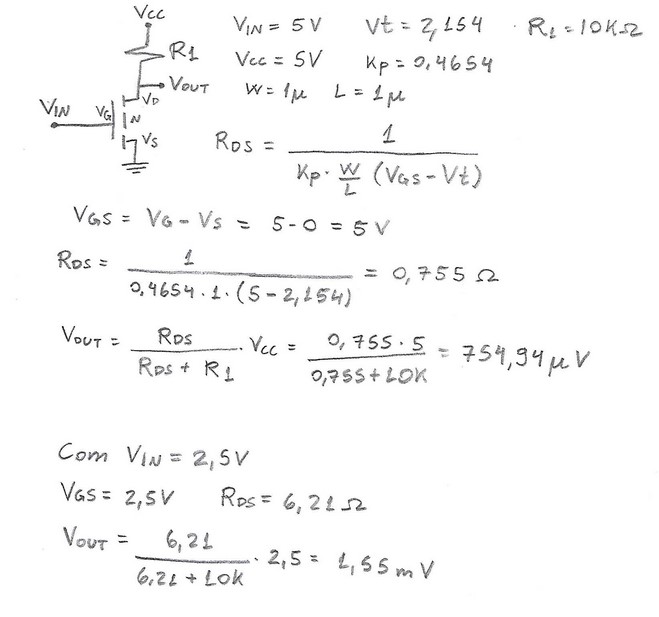 Vcc
R1
VOUT
VD
VIN VG N
VS
VIN = 5V Vt = 2,154 R1 = 10KΩ
Vcc = 5V Kp = 0,4654
W = 1μ L = 1μ
RDS = 1 / (Kp · W/L (VGS - Vt))
VGS = VG - VS = 5 - 0 = 5V
RDS = 1 / (0,4654 · 1 · (5 - 2,154)) = 0,755 Ω
VOUT = RDS / (RDS + R1) · Vcc = 0,755 · 5 / (0,755 + 10K) = 754,94 μV
Com VIN = 2,5V
VGS = 2,5V RDS = 6,21 Ω
VOUT = 6,21 / (6,21 + 10K) · 2,5 = 1,55 mV